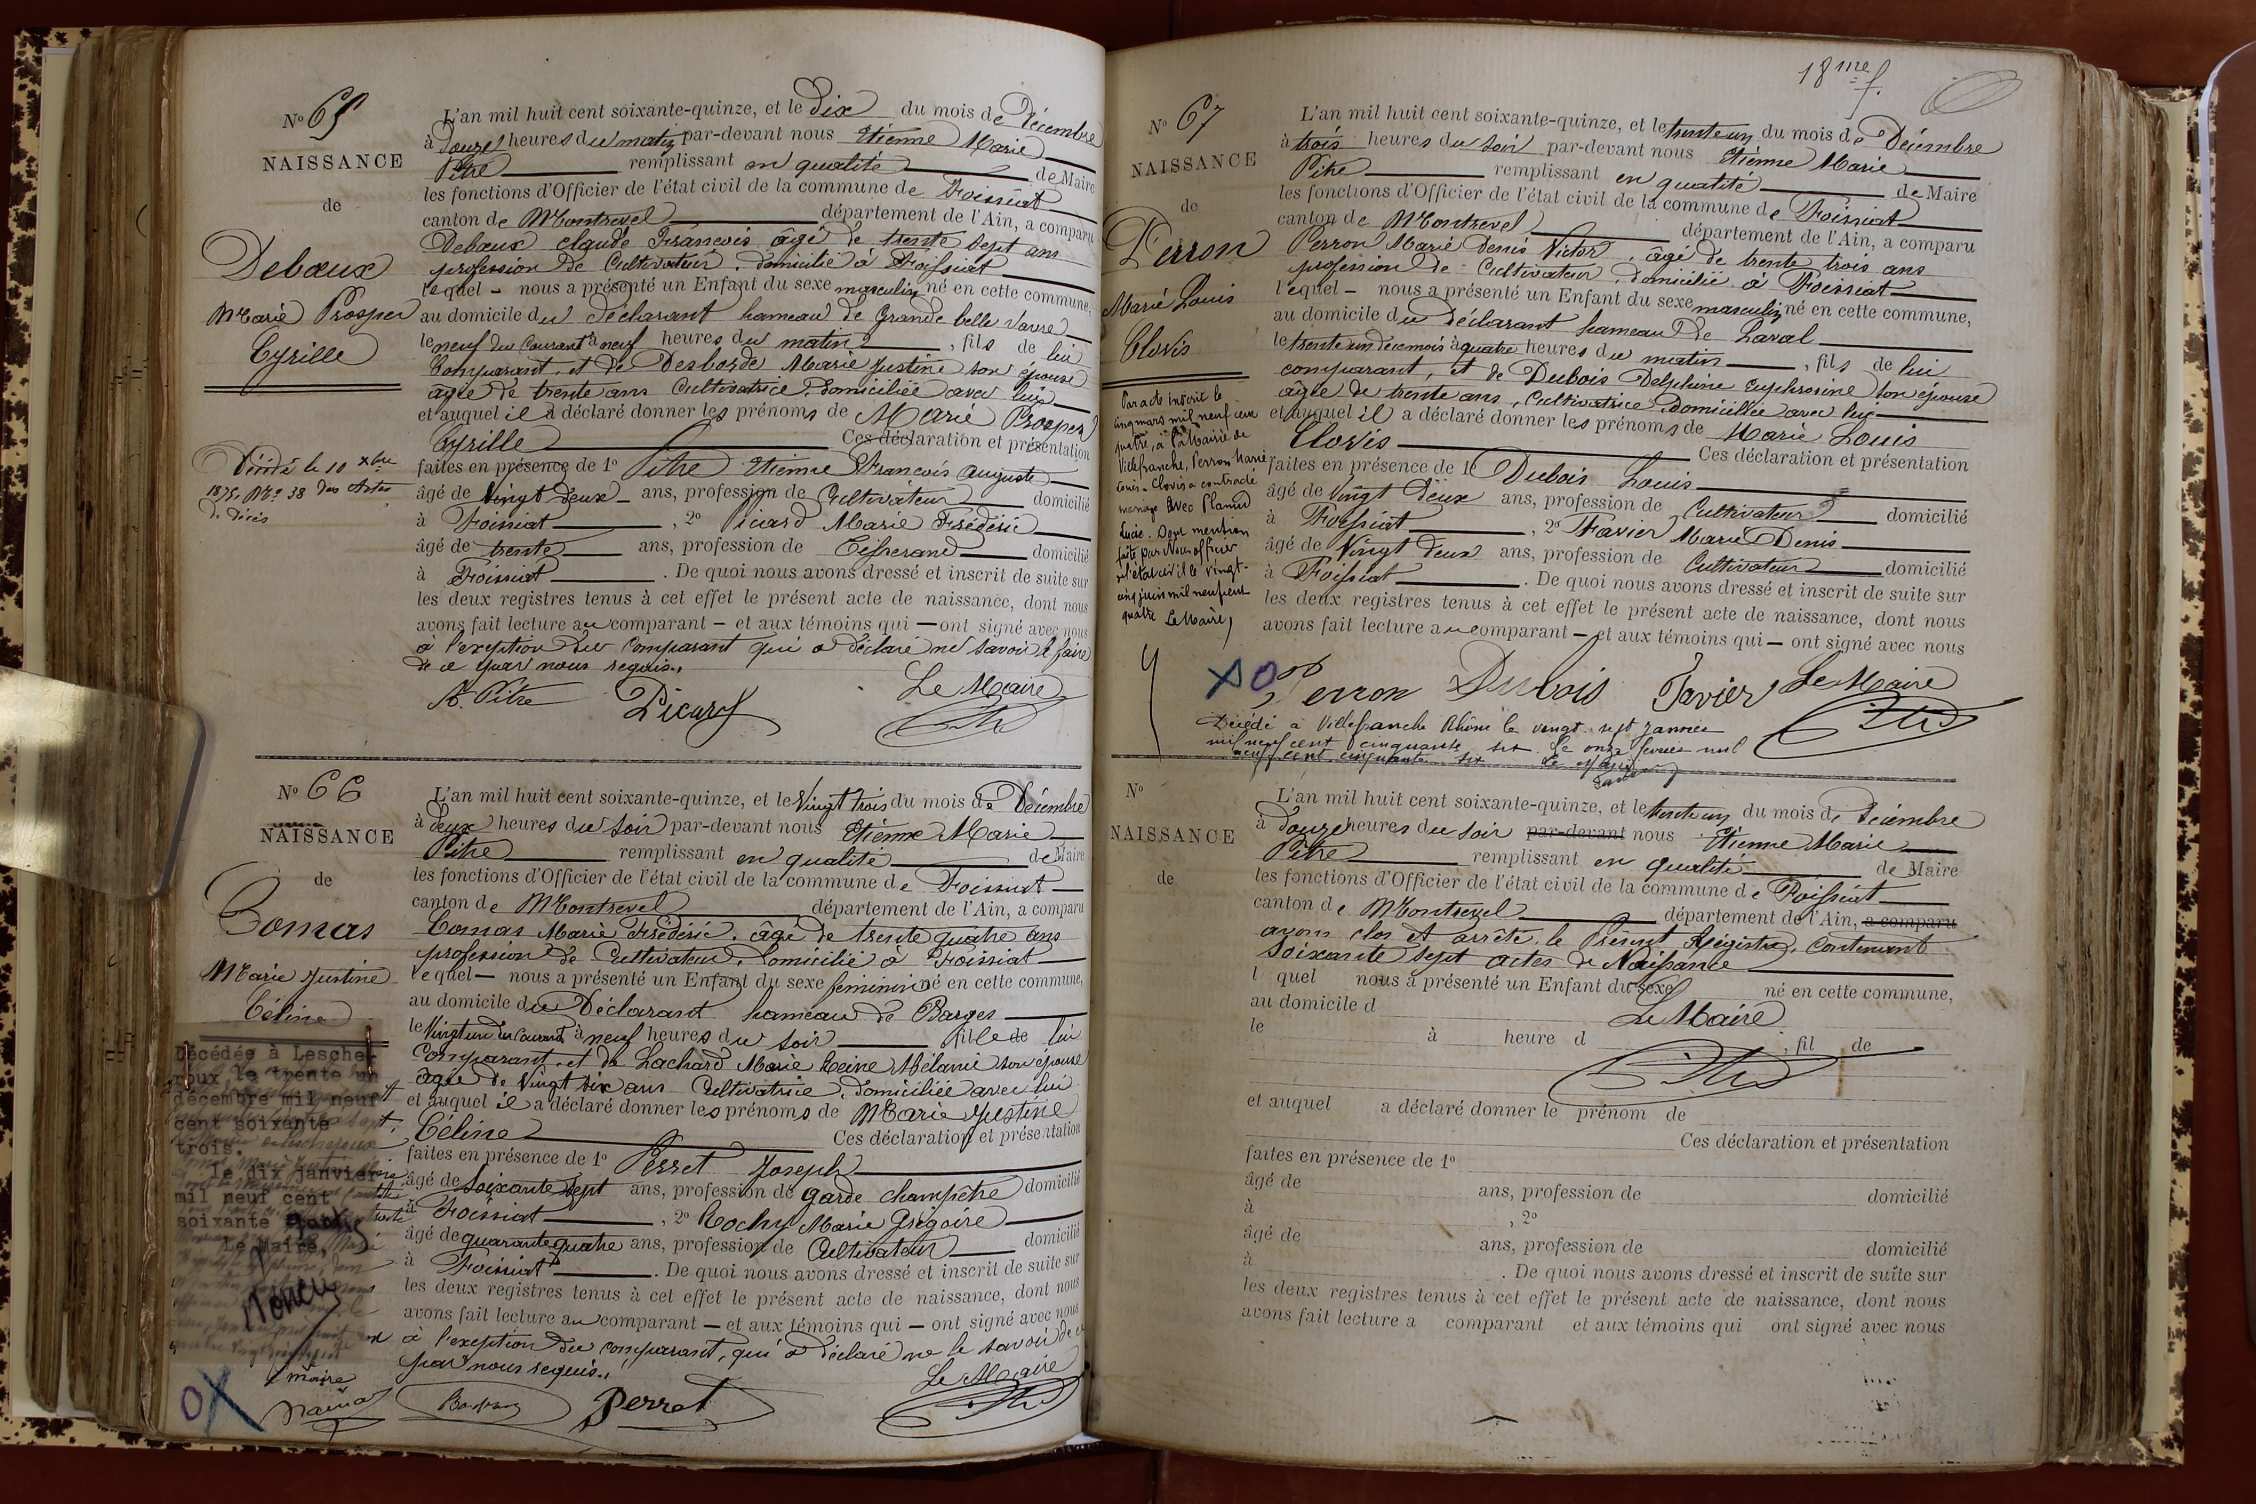 No 65
NAISSANCE
de
Debœux
Marie Prosper
Cyrille
Décédé le 10 xbre
1875. No 38 des Actes
de décès
L'an mil huit cent soixante-quinze, et le Dix du mois de Décembre
à Douze heures du matin par-devant nous Etienne Marie
Pitre remplissant en qualité de Maire
les fonctions d'Officier de l'état civil de la commune de Foissiat
canton de Montrevel département de l'Ain, a comparu
Debœux claude Francois âgé de trente sept ans
profession de Cultivateur, domicilié à Foissiat
lequel – nous a présenté un Enfant du sexe masculin né en cette commune,
au domicile du Déclarant hameau de Grande belle
le neuf du courant à neuf heures du matin, fils de lui
Comparant, et de Desborde Marie Justine son épouse
âgée de trente ans Cultivatrice, domiciliée avec lui
et auquel il a déclaré donner les prénoms de Marie Prosper
Cyrille Ces déclaration et présentation
faites en présence de 1o Pitre Etienne Francois Auguste
âgé de Vingt deux – ans, profession de Cultivateur domicilié
à Foissiat, 2o Picard Marie Frédéric
âgé de trente ans, profession de Tisserand domicilié
à Foissiat. De quoi nous avons dressé et inscrit de suite sur
les deux registres tenus à cet effet le présent acte de naissance, dont nous
avons fait lecture au comparant – et aux témoins qui – ont signé avec nous
à l'exeption du Comparant qui a déclaré ne savoir le faire
de ce par nous requis.
A. Pitre Picard Le Maire
No 66
NAISSANCE
de
Comas
Marie Justine
Céline
Décédée à Lesche-
roux le trente un
décembre mil neuf
cent soixante
trois.
Le dix janvier
mil neuf cent
soixante
Le Maire,
L'an mil huit cent soixante-quinze, et le Vingt trois du mois de Décembre
à deux heures du soir par-devant nous Etienne Marie
Pitre remplissant en qualité de Maire
les fonctions d'Officier de l'état civil de la commune de Foissiat
canton de Montrevel département de l'Ain, a comparu
Comas Marie Frédéric, âgé de trente quatre ans
profession de Cultivateur, domicilié à Foissiat
lequel – nous a présenté un Enfant du sexe feminin né en cette commune,
au domicile du Déclarant hameau de Barges
le Vingt un du Courant à neuf heures du soir fille de lui
Comparant, et de Lachard Marie Reine Mélanie son épouse
âgée de Vingt six ans Cultivatrice, domiciliée avec lui
et auquel il a déclaré donner les prénoms de Marie Justine
Céline Ces déclaration et présentation
faites en présence de 1o Perret Joseph
âgé de soixante sept ans, profession de garde champêtre domicilié
à Foissiat, 2o Rochy Marie Grégoire
âgé de quarante quatre ans, profession de Cultivateur domicilié
à Foissiat. De quoi nous avons dressé et inscrit de suite sur
les deux registres tenus à cet effet le présent acte de naissance, dont nous
avons fait lecture au comparant – et aux témoins qui – ont signé avec nous
à l'exeption du comparant, qui a déclaré ne le savoir de ce
par nous requis.
maire
Perret Le Maire
18me f.
No 67
NAISSANCE
de
Perron
Marie Louis
Clovis
Par acte inscrit le
cinq mars mil neuf cent
quatre, à la Mairie de
Villefranche, Perron Marie
Louis-Clovis a contracté
mariage avec Plamud
Lucie. Dont mention
faite par Nous officier
de l'état civil le vingt-
cinq juin mil neuf cent
quatre Le Maire,
L'an mil huit cent soixante-quinze, et le trente un du mois de Décembre
à trois heures du soir par-devant nous Etienne Marie
Pitre remplissant en qualité de Maire
les fonctions d'Officier de l'état civil de la commune de Foissiat
canton de Montrevel département de l'Ain, a comparu
Perron Marie Denis Victor, âgé de trente trois ans
profession de Cultivateur, domicilié à Foissiat
lequel – nous a présenté un Enfant du sexe masculin né en cette commune,
au domicile du Déclarant hameau de Laval
le trente un de ce mois à quatre heures du matin, fils de lui
comparant, et de Dubois Delphine Euphrosine son épouse
âgée de trente ans, Cultivatrice, Domiciliée avec lui
et auquel il a déclaré donner les prénoms de Marie Louis
Clovis Ces déclaration et présentation
faites en présence de 1o Dubois Louis
âgé de Vingt deux ans, profession de Cultivateur domicilié
à Foissiat, 2o Favier Marie Denis
âgé de Vingt deux ans, profession de Cultivateur domicilié
à Foissiat. De quoi nous avons dressé et inscrit de suite sur
les deux registres tenus à cet effet le présent acte de naissance, dont nous
avons fait lecture au comparant – et aux témoins qui – ont signé avec nous
Perron Dubois Favier Le Maire
Décédé à Villefranche Rhône le vingt-sept janvier
mil neuf cent cinquante six. Le onze février mil
neuf cent cinquante six Le Maire
No
NAISSANCE
de
L'an mil huit cent soixante-quinze, et le trente un du mois de Décembre
à Douze heures du soir par-devant nous Etienne Marie
Pitre remplissant en qualité de Maire
les fonctions d'Officier de l'état civil de la commune de Foissiat
canton de Montrevel département de l'Ain, a comparu
avons clos et arrêté, le Présent Régistre, Contenant
soixante sept actes de Naissance
l quel nous a présenté un Enfant du sexe né en cette commune,
au domicile d Le Maire
le à heure d , fil de
et auquel a déclaré donner le prénom de
Ces déclaration et présentation
faites en présence de 1o
âgé de ans, profession de domicilié
à , 2o
âgé de ans, profession de domicilié
à . De quoi nous avons dressé et inscrit de suite sur
les deux registres tenus à cet effet le présent acte de naissance, dont nous
avons fait lecture a comparant et aux témoins qui ont signé avec nous